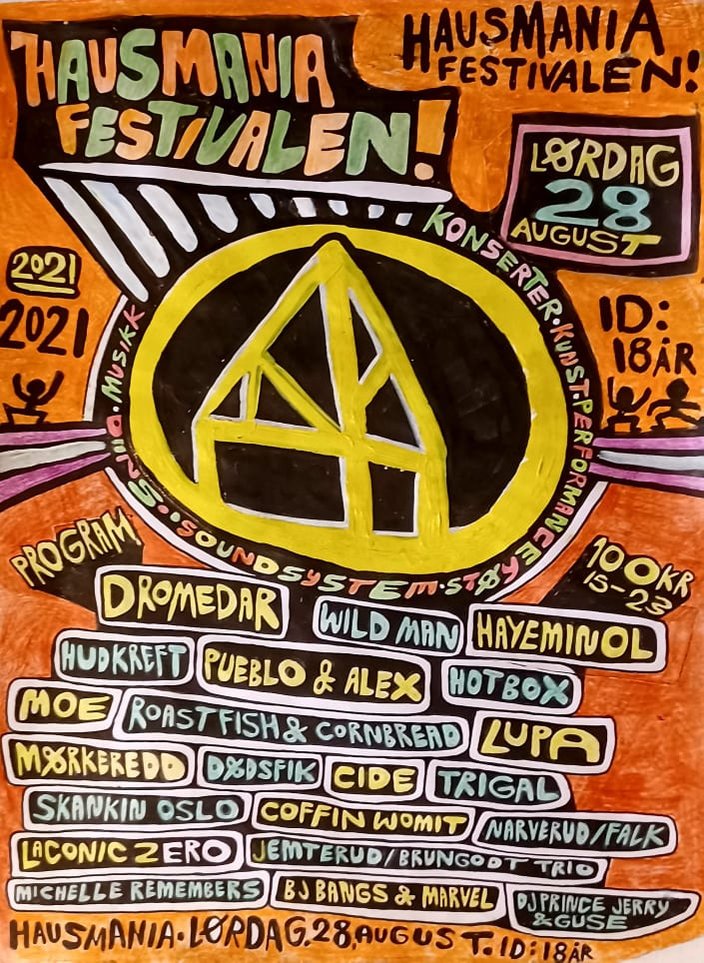 HAUSMANIA
FESTIVALEN!
HAUSMANIA
FESTIVALEN!
LØRDAG
28
AUGUST
2021
2021
ID:
18 ÅR
MUSIKK
KONSERTER · KUNST · PERFORMANCE
SOUNDSYSTEM · STØY
PROGRAM
100 KR
15-23
DROMEDAR WILD MAN HAYEMINOL
HUDKREFT PUEBLO & ALEX HOTBOX
MOE ROASTFISH & CORNBREAD LUPA
MØRKEREDD DØDSFIK CIDE TRIGAL
SKANKIN OSLO COFFIN WOMIT NARVERUD/FALK
LACONIC ZERO JEMTERUD/BRUNGODT TRIO
MICHELLE REMEMBERS BJ BANGS & MARVEL DJ PRINCE JERRY
& GUSE
HAUSMANIA · LØRDAG. 28. AUGUST. ID: 18 ÅR